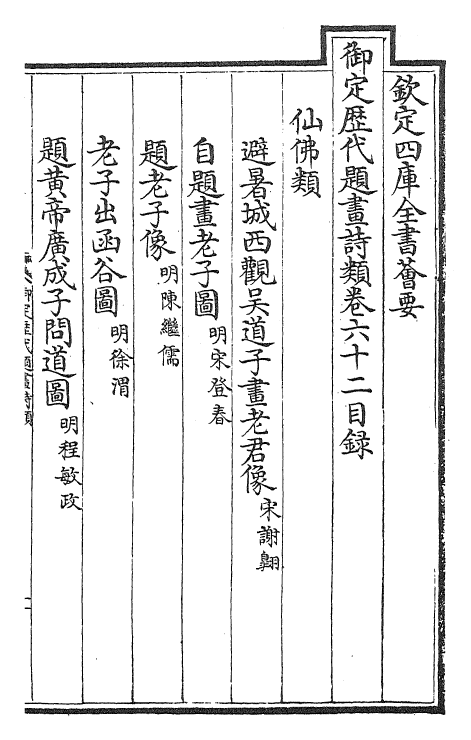 欽定四庫全書薈要
御定歴代題畫詩類卷六十二目録
仙佛類
避暑城西觀吴道子畫老君像 宋謝翶
自題畫老子圖 明宋登春
題老子像 明陳繼儒
老子出函谷圖 明徐渭
題黄帝廣成子問道圖 明程敏政
御定歴代題畫詩類